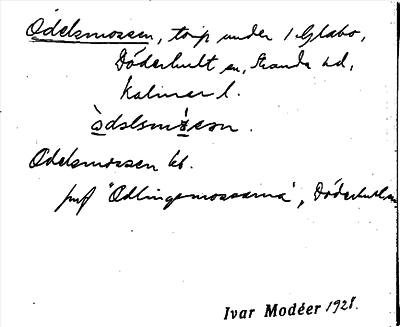 Ödelsmossen, torp under 1 Glabo,
Döderhult sn, Stranda hd,
Kalmar l.
Odelsmossen kb.
jmf "Odlingsmossarna", Döderhults sn
Ivar Modéer 1928.